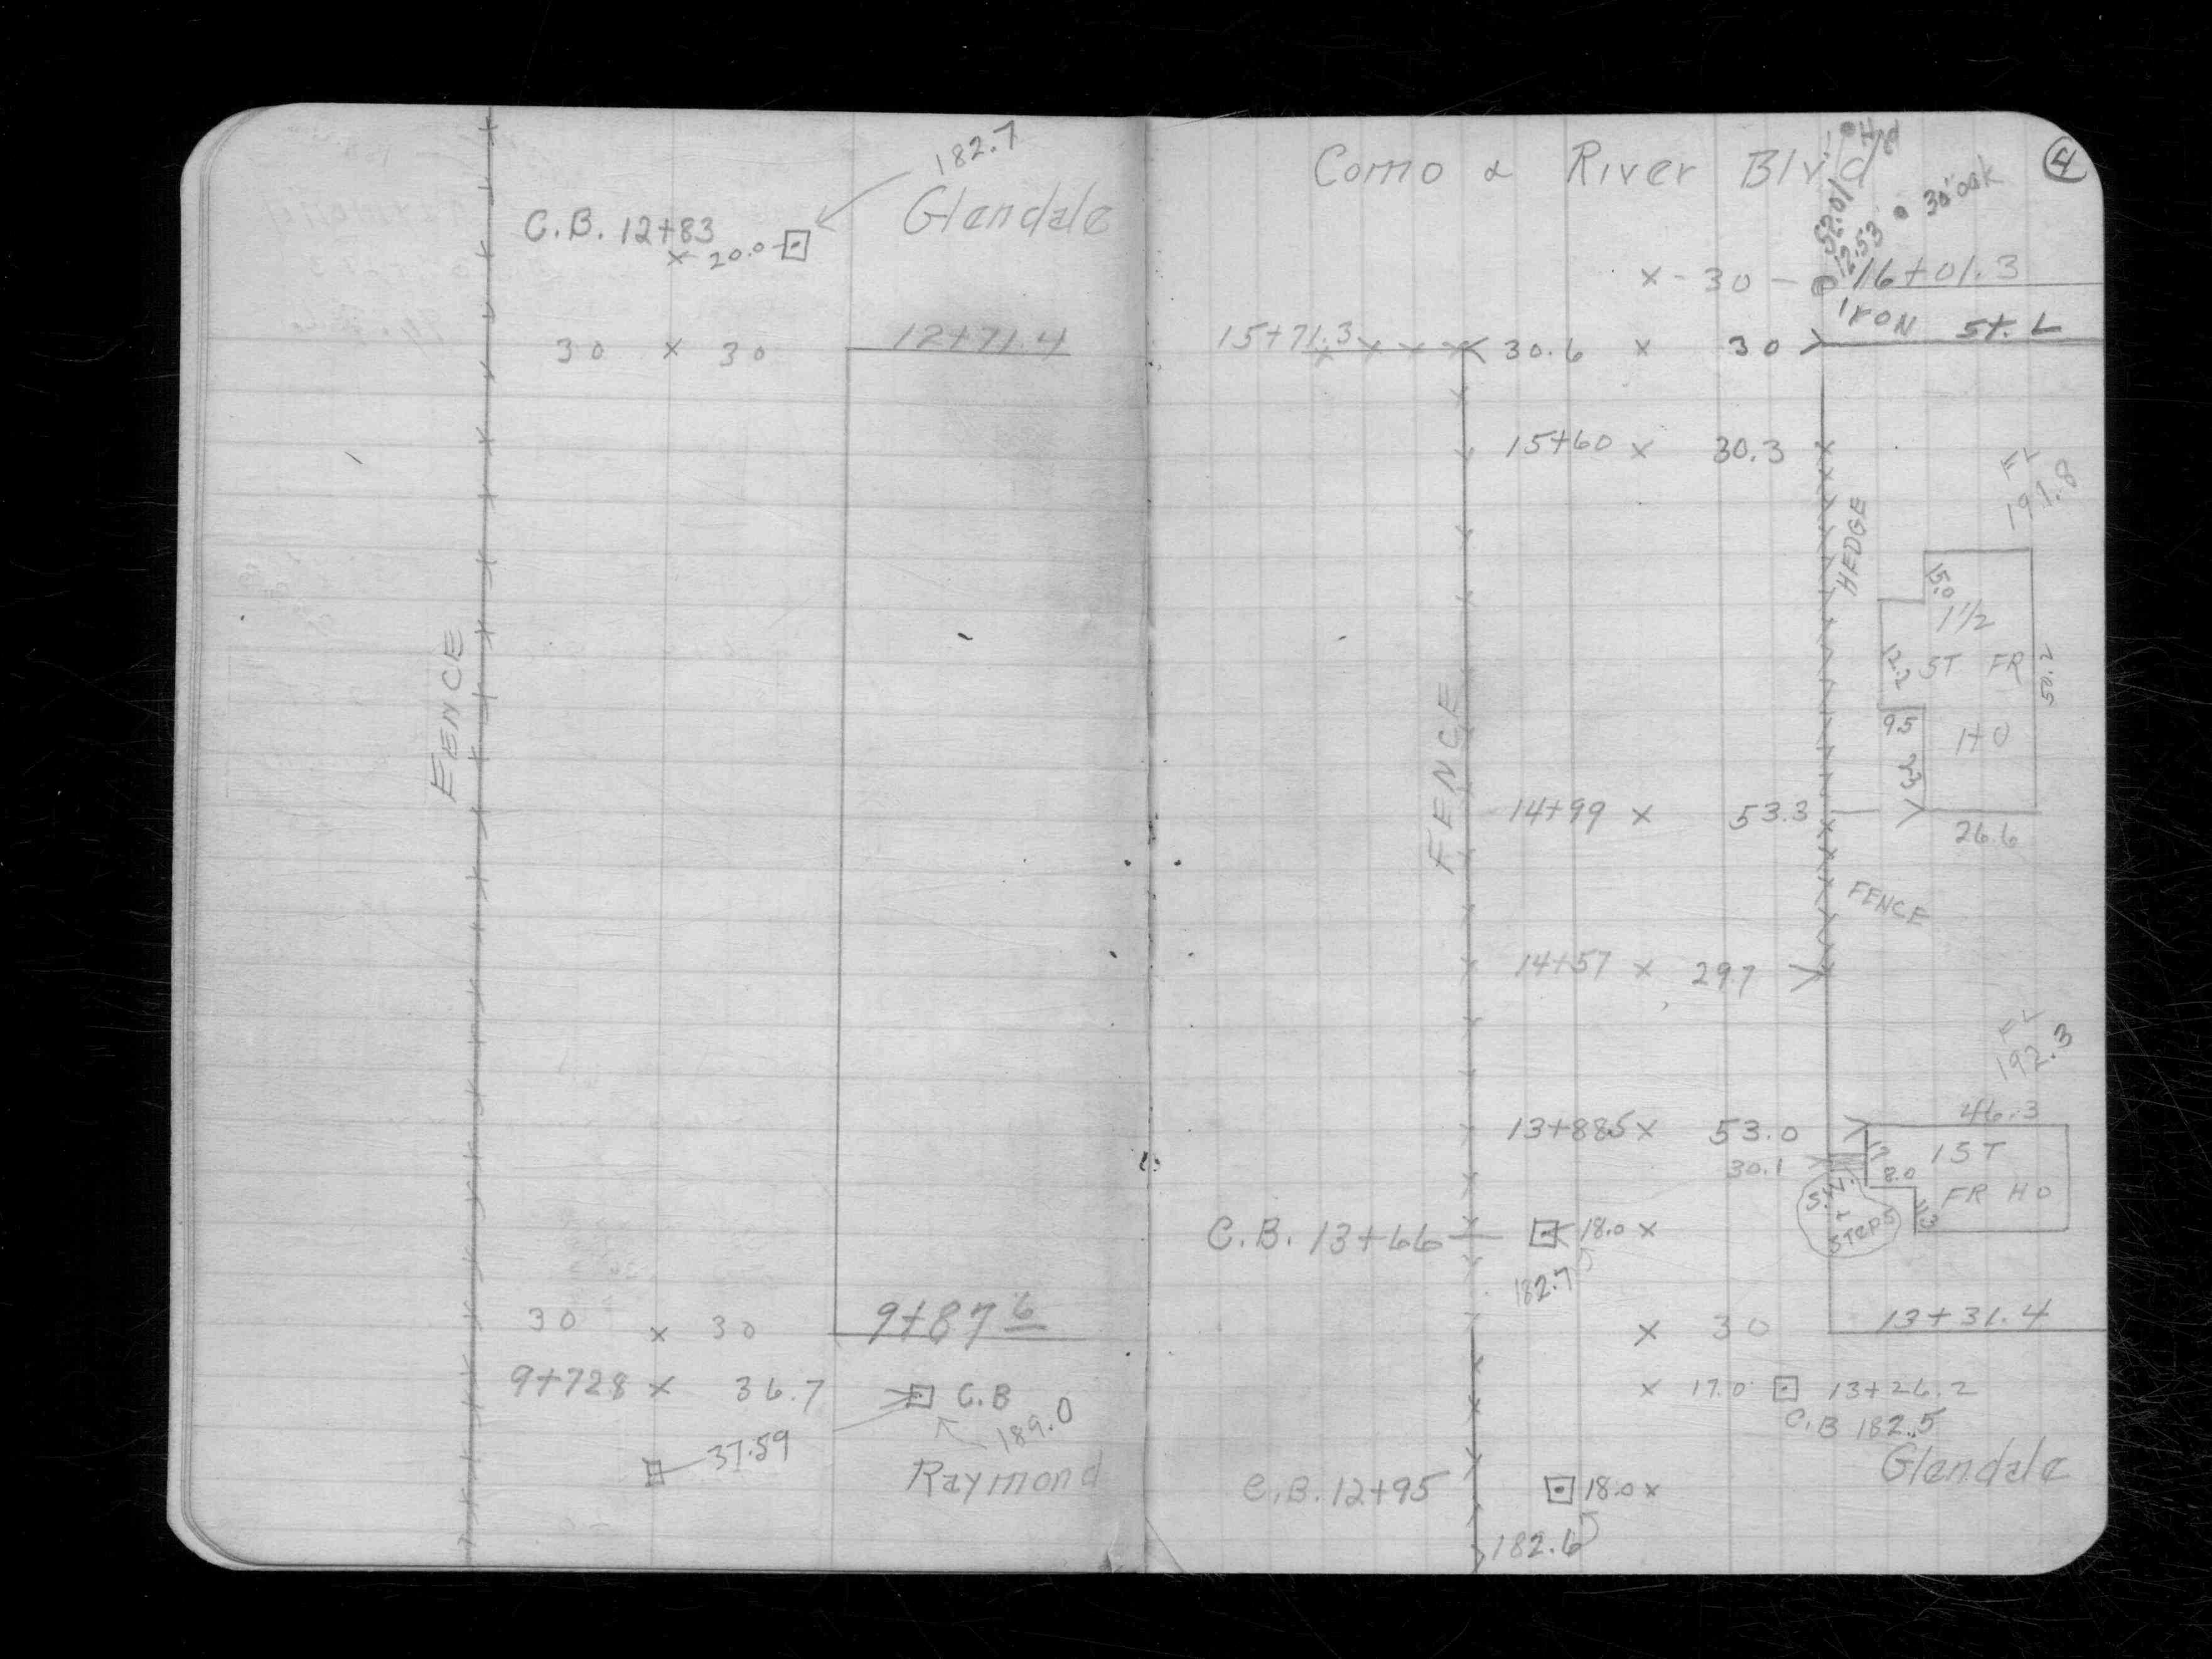 182.7
Glendale
C.B. 12+83
x 20.0
30 x 30 12+71.4
FENCE
30 x 30 9+87 6
9+728 x 36.7 C.B
189.0
37.59
Raymond
Como & River Blvd
4
Hyd
52.01
12.53
30" oak
x - 30 - 16+01.3
IRON St. L
15+71.3 30.6 x 30
15+60 x 30.3
FL
191.8
HEDGE
15.0
1 1/2
12.2 ST FR 50.2
9.5 HO
23
14+99 x 53.3
26.6
FENCE
FENCE
14+57 x 29.7
FL
192.3
46.3
13+885 x 53.0
1 ST
30.1
8.0
FR HO
STEPS
C.B. 13+66 18.0 x
182.7
x 30 13+31.4
x 17.0 13+26.2
C.B 182.5
Glendale
C.B. 12+95 18.0 x
182.6